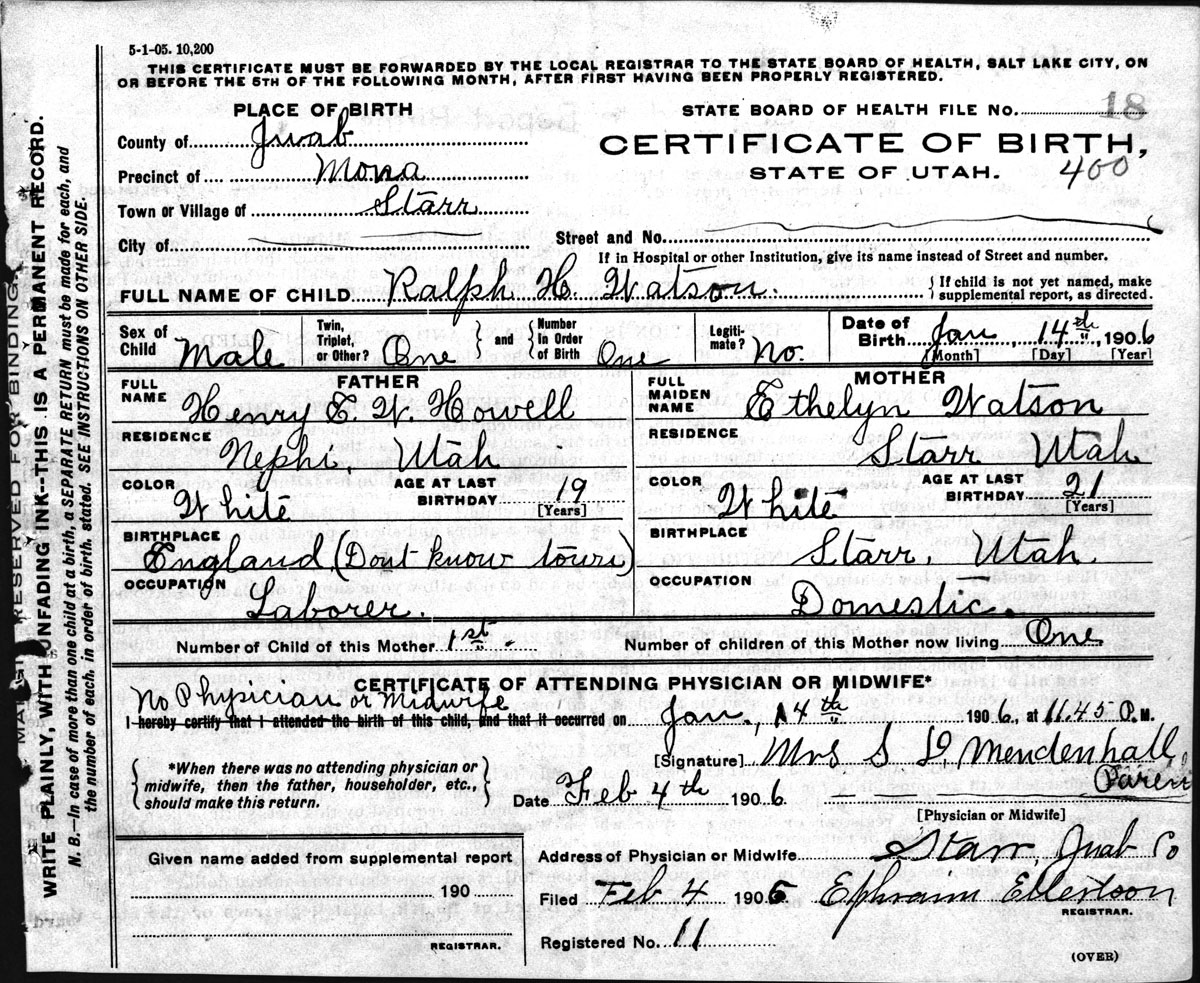 5-1-05. 10,200
THIS CERTIFICATE MUST BE FORWARDED BY THE LOCAL REGISTRAR TO THE STATE BOARD OF HEALTH, SALT LAKE CITY, ON
OR BEFORE THE 5TH OF THE FOLLOWING MONTH, AFTER FIRST HAVING BEEN PROPERLY REGISTERED.
PLACE OF BIRTH
County of Juab
Precinct of Mona
Town or Village of Starr
City of
STATE BOARD OF HEALTH FILE NO. 18
CERTIFICATE OF BIRTH,
STATE OF UTAH. 400
Street and No.
If in Hospital or other Institution, give its name instead of Street and number.
FULL NAME OF CHILD Ralph H. Watson. { If child is not yet named, make
supplemental report, as directed.
Sex of Child Male
Twin, Triplet, or Other? One } and { Number In Order of Birth One
Legitimate? No.
Date of Birth Jan 14th, 1906
[Month] [Day] [Year]
FATHER
FULL NAME Henry E. W. Howell
RESIDENCE Nephi, Utah
COLOR White AGE AT LAST BIRTHDAY 19 [Years]
BIRTHPLACE England (Dont know town)
OCCUPATION Laborer.
MOTHER
FULL MAIDEN NAME Ethelyn Watson
RESIDENCE Starr Utah
COLOR White AGE AT LAST BIRTHDAY 21 [Years]
BIRTHPLACE Starr, Utah.
OCCUPATION Domestic.
Number of Child of this Mother 1st. Number of children of this Mother now living One
CERTIFICATE OF ATTENDING PHYSICIAN OR MIDWIFE*
No Physician or Midwife
I hereby certify that I attended the birth of this child, and that it occurred on Jan., 14th 1906, at 11.45 P.M.
*When there was no attending physician or
midwife, then the father, householder, etc.,
should make this return.
[Signature] Mrs S D. Mendenhall
Date Feb 4th 1906.
[Physician or Midwife]
Given name added from supplemental report
190
REGISTRAR.
Address of Physician or Midwife Starr, Juab Co
Filed Feb 4 1906 Ephraim Ellertson
REGISTRAR.
Registered No. 11
(OVER)
MARGIN RESERVED FOR BINDING.
WRITE PLAINLY, WITH UNFADING INK--THIS IS A PERMANENT RECORD.
N. B.--In case of more than one child at a birth, a SEPARATE RETURN must be made for each, and
the number of each, in order of birth, stated. SEE INSTRUCTIONS ON OTHER SIDE.